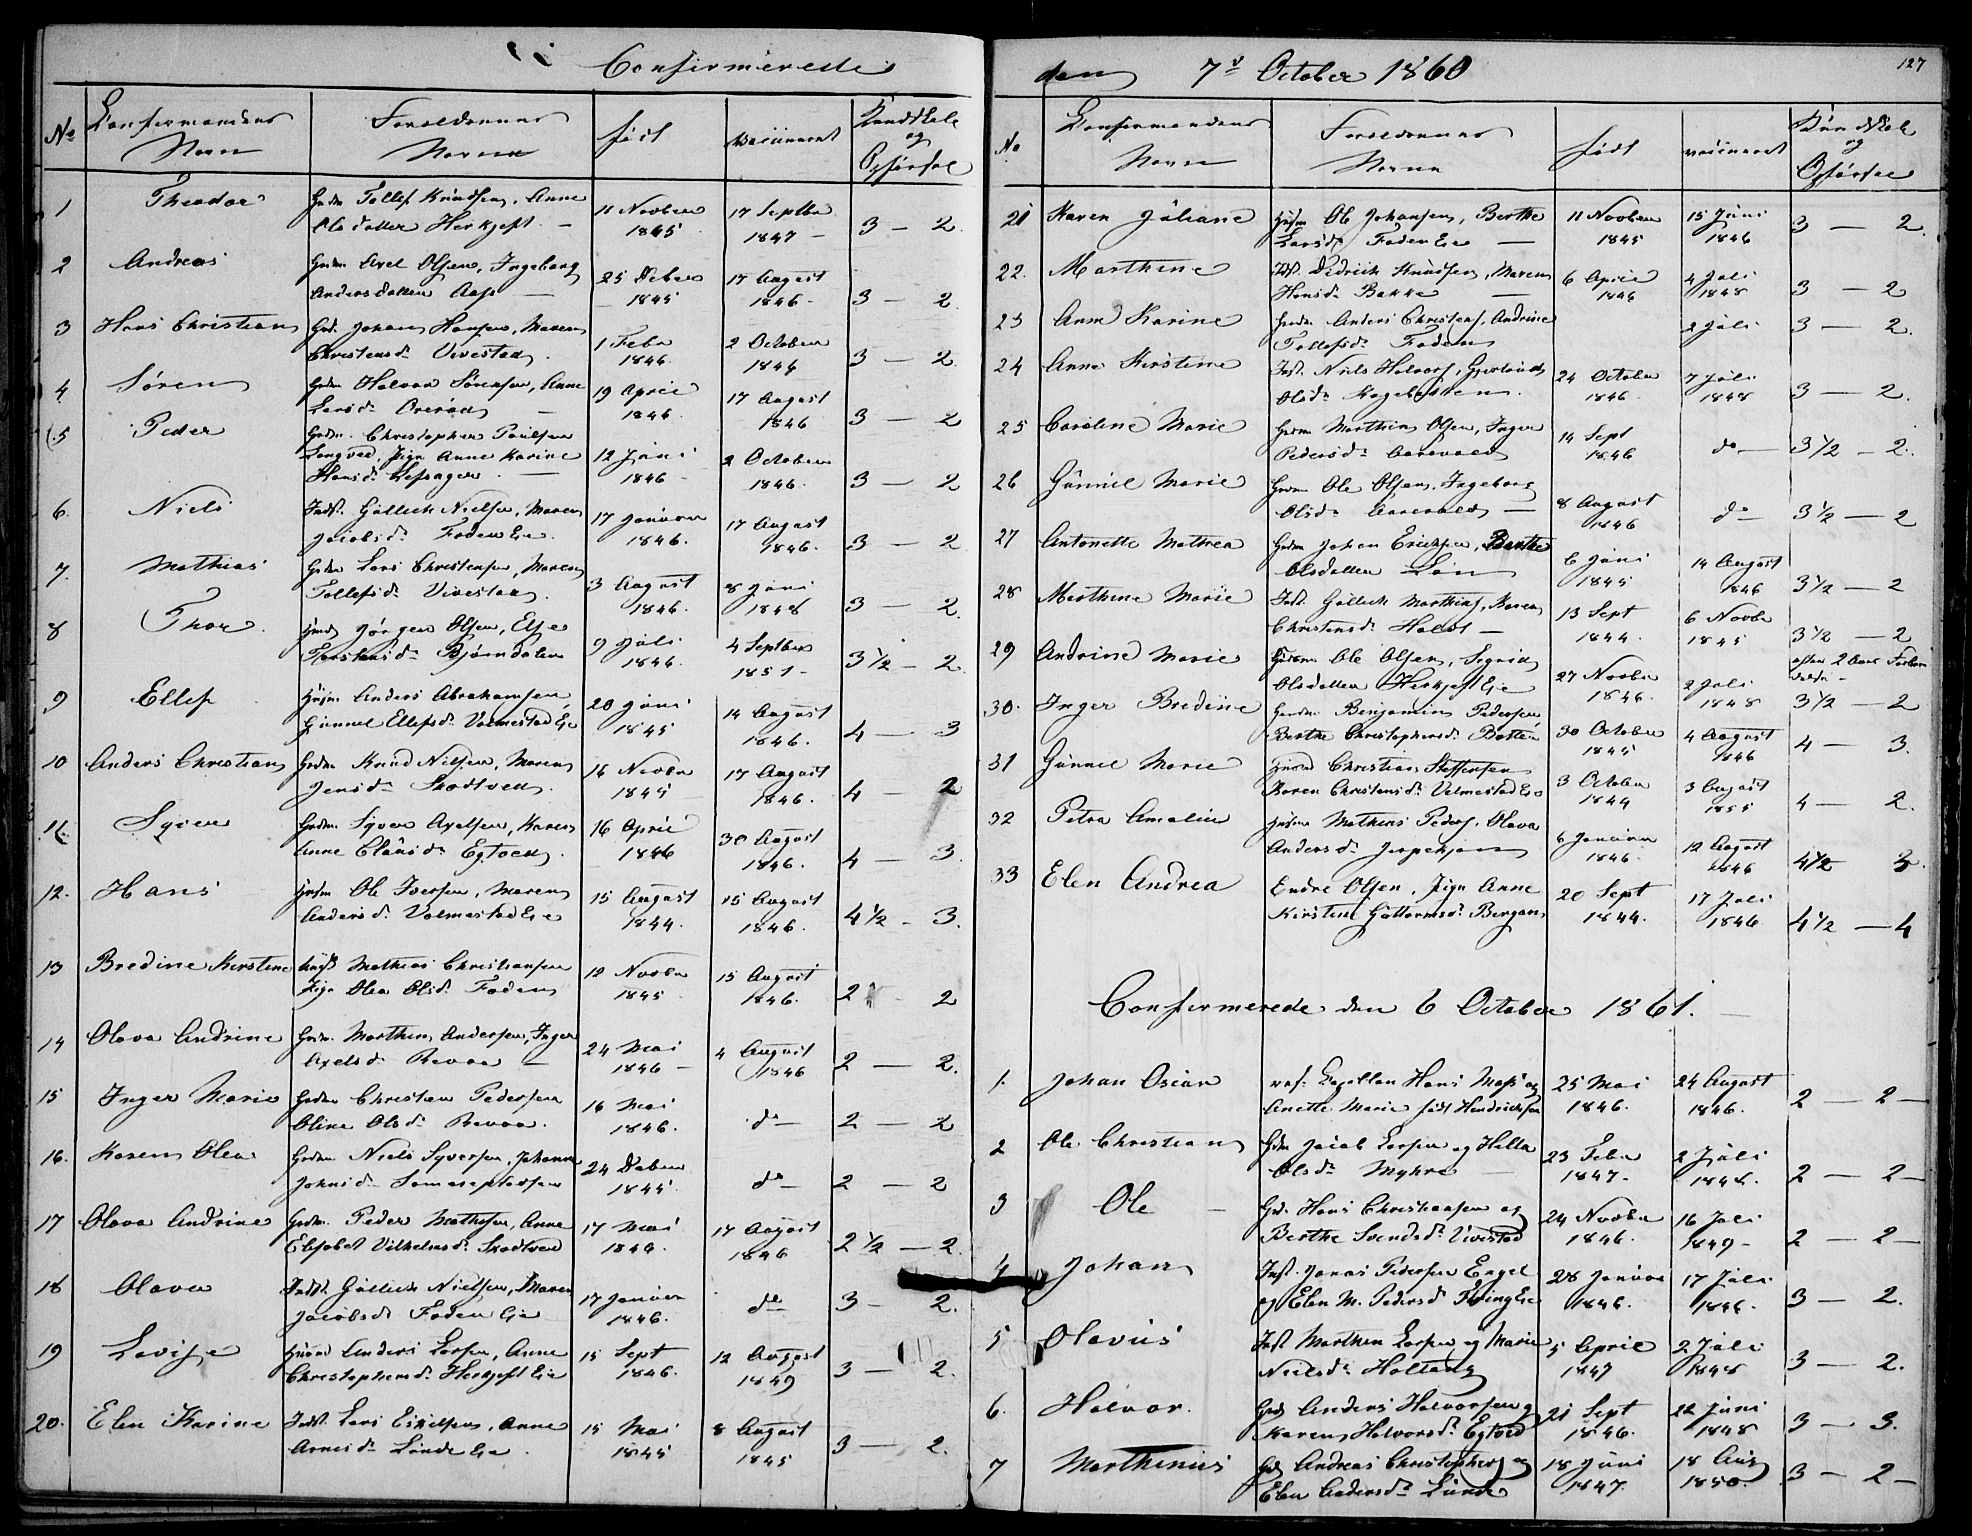 Confirmerede
No Confirmandens Navn Forældrenes Navne født vaccineret Kundskab og Opførsel
1 Theodor Grdm Tollef Knudsen, Anne 11 Novbr 17 Septbr
Olsdatter Herkjest 1845 1847 3 – 2
2 Andreas Grdm. Axel Olsen, Ingeborg 25 Debr 17 August
Andersdatter Aase 1845 1846 3 – 2
3 Hans Christian Grd. Johan Hansen, Maren 1 Febr 2 October
Christensdr Vivestad 1846 1846 3 – 2
4 Søren Grdm Halvor Sørensen, Anne 19 April 17 August
Larsdr 1846 1846 3 – 2
5 Peder Grdm. Christopher Paulsen
Langved, Pige Anne Karine 12 Juni 2 October
Hansdr 1846 1846 3 – 2
6. Niels Indst. Gullich Nielsen, Maren 17 Januar 17 August
Jacobsdr Foden Eie 1846. 1846. 3 – 2
7. Mathias Grdm Lars Christensen, Maren 3 August 8 Juni
Tollefsdr Vivestad 1846. 1848 3 – 2
8 Thor Jørgen Olsen, Else 9 Juli 4 Septber
Torstensdr Bjørndalen 1846. 1851 3½ – 2
9 Ellef Husm Anders Abrahamsen, 20 Juni 14 August
Gunnel Ellefsdr Valmestad Eie 1845 1846. 4 – 3
10 Anders Christian Grdm Knud Nilsen, Maren 16 Novbr 17 August
Jensdr Skodtved 1845 1846. 4 – 2
11. Syver Grdm. Syver Axelsen, Karen 16 April 30 August
Anne Clausdr Egtved 1846 1846. 4 – 3
12. Hans Husm Ole Iversen, Maren 15 August 15 August
Andersdr Valmestad Eie 1844. 1846. 4½ – 3.
13 Bredine Kirstine Mathias Christiansen 12 Novbr 15 August
Pige Olea Olsdr Foden 1845 1846. 2 – 2
14 Olava Andrine Grdm. Marthin Andersen, Inger 24 Mai 4 August
Axelsdr Revaa 1846 1846 2 – 2.
15 Inger Marie Grdm Christian Pedersen 16 Mai
Oline Olsdr Revaa. 1846. do 2 – 2
16. Karen Olea Grdm Niels Syversen, Johanne 24 Debr
Johnsdr 1845 do 2 – 2
17 Olava Andrine Grdm. Peder Mathisen, Anne 17 Mai 17 August
Elisabet Vilhelmsdr Skodtved 1846. 1846 2½ – 2.
18 Olava Indst. Gullich Nielsen, Maren 17 Januar
Jacobsdr Foden Eie 1846. do 3 – 2.
19 Lovise Anders Larsen, Anne 15 Sept 12 August
Christophersdr Herkjest Eie 1846. 1849 3 – 2.
20. Elen Karine Indst. Lars Eskilsen, Anne 15 Mai 8 August
Arnesdr Lunde Eie 1845 1845 3 – 2.
den 7de October 1860
127
No Confirmandens Navn Forældrenes Navne født vaccineret Kundskab og Opførsel
21 Karen Juliane Husm Ole Johansen, Berthe 11 Novber 15 Juni
Larsdr Foden Eie 1845 1846 3 – 2.
22. Marthine Indst. Didrich Knudsen, Maren 6 April 4 Juli
Hansdr Bakke 1846 1848 3 – 2
23 Anne Karine Grdm Anders Christens, Andrine 2 Juli 3 – 2.
Tollefsdr Foden
24 Anne Kirstine Indst. Niels Halvors, Gjertrud 24 October 7 Juli
Olsdr 1846 1848 3 – 2.
25 Caroline Marie Grdm Marthin Olsen, Inger 14 Sept
Pedersdr Aarevald 1846 do 3½ – 2.
26 Gunnil Marie Grdm Ole Olsen, Ingeborg 8 August
Olsdr Aarevald 1846 do 3½ – 2
27 Antonette Mathea Grdm Johan Ericksen, Berthe 6 Juni 14 August
Olsdatter 1845 1846 3½ – 2
28 Marthine Marie Indst. Gullich Marthins, Karen 13 Sept 6 Novbr
Christensdr 1844. 1845 3½ – 2
29 Andrine Marie Husm Ole Olsen, Sigrid 27 Novbr 2 Juli
Olsdatter Herkjest Eie 1846. 1848 3½ – 2
30. Inger Bredine Grdm. Benjamin Pedersen, 30 October 4 August
Berthe Christophersdr 1845 1846 4 – 3.
31 Gunnil Marie Christian Steffensen 3 October 3 August
Karen Christensdr Valmestad Eie 1844 1855 4 – 2.
32 Petra Amalie Husm Mathias Peders, Olava 6 Januar 12 August
Andersdr 1846. 1846 4½ 3.
33 Elen Andrea Endre Olsen, Pige Anne 20 Sept 17 Juli
Kirstine Guttormsdr Bergan 1844. 1846 4½ – 4
Confirmerede den 6 October 1861.
1. Johan Oscar Capellan Hans og 25 Mai 24 August
Anette Marie født Hendrichsen 1846. 1846. 2 – 2 –
2 Ole Christian Grdm Jacob Larsen og Hella 23 Febr 2 Juli
Olsdr Myhre 1847. 1848. 2 – 2 –
3 Ole Grd. Hans Christiansen og 24 Novbr 16 Juli
Berthe Svendsdr Vivestad 1846. 1849 2 – 2 –
4 Johan Inst. Jonas Pedersen Engel 28 Januar 17 Juli
og Elen M. Pedersdr 1846. 1846. 3 – 2.
5 Olavus Inst Marthin Larsen og Marie 5 April 2 Juli
Nielsdr Holtung 1847 1848 3 – 2.
6. Halvor. Anders Halvorsen og 21 Sept 22 Juni
Karen Halvorsdr Egtved 1846. 1848 3 – 3.
7 Marthinius Andreas Christophers og 18 Juni 18 Aug
Elen Andersdr Lunde 1847. 1850. 3 – 2 –